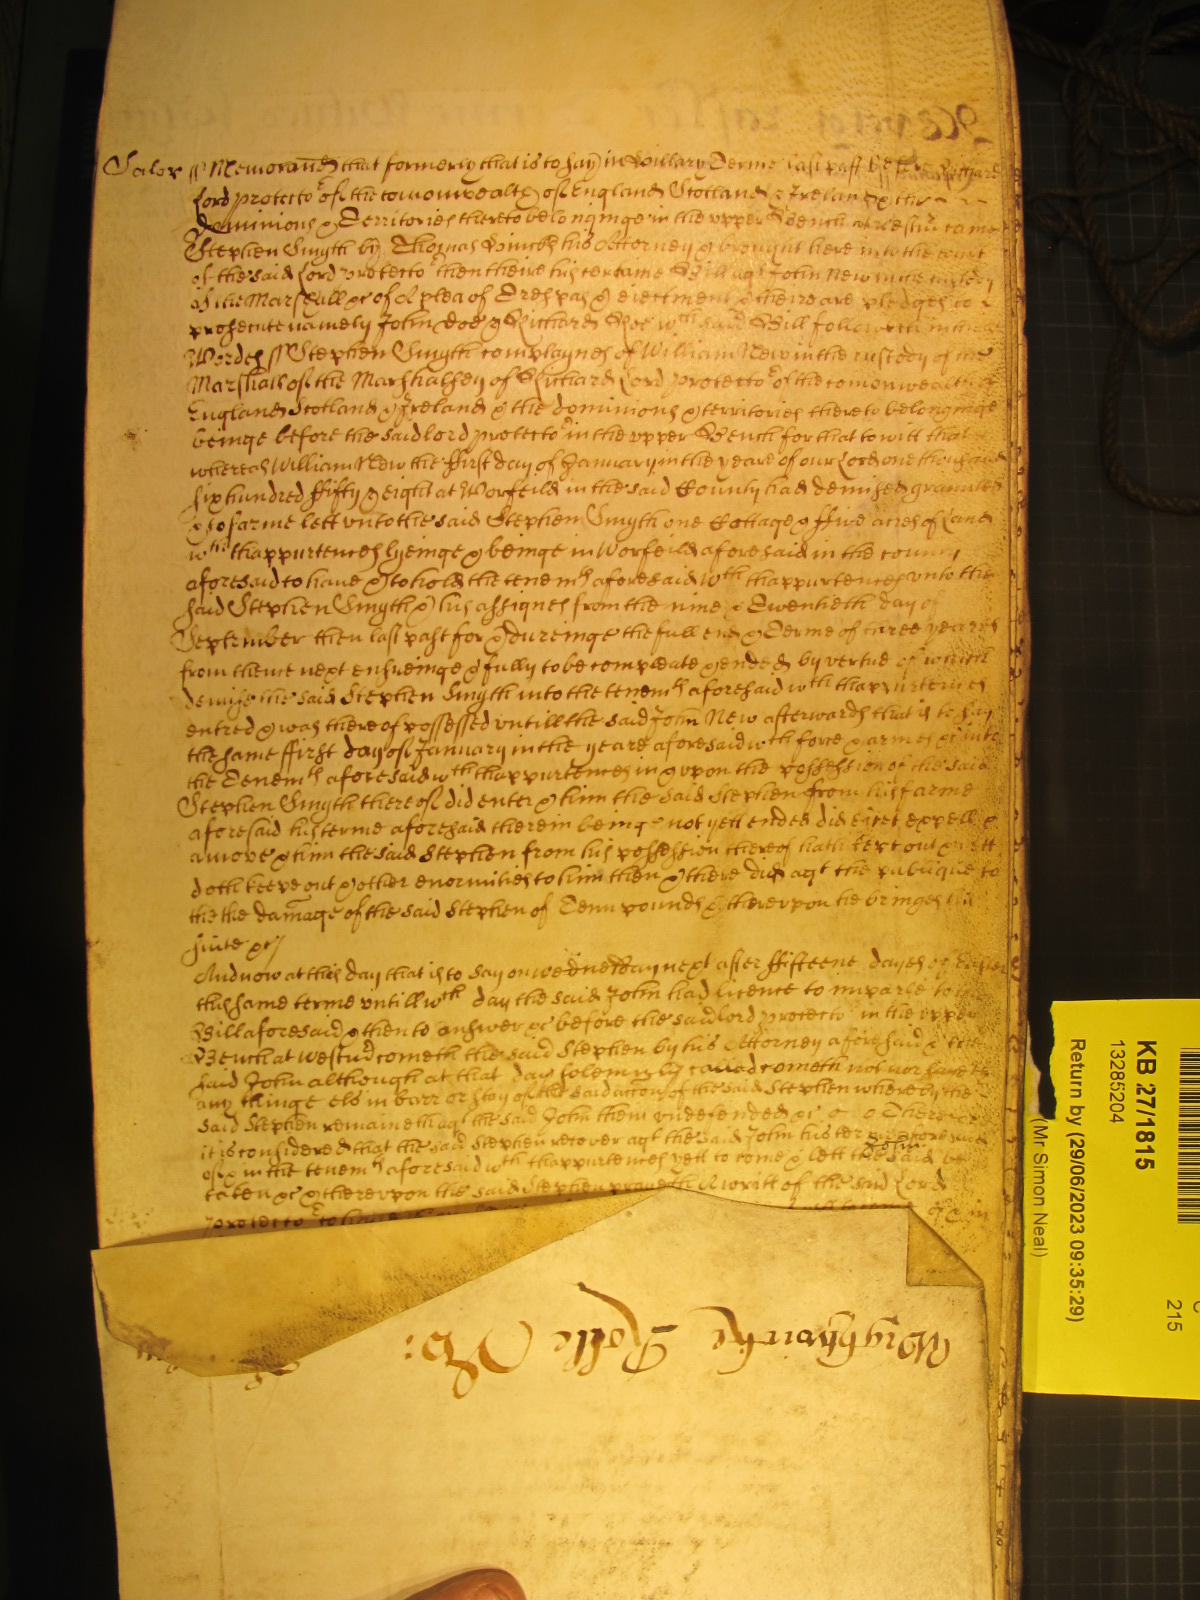 Salop ss Memorand that formerly that is to say in Hillary Terme last past before Richard
Lord protector of the comonwealth of England Scotland & Ireland & the
dominions & Territories thereto belonginge in the upper Bench at Westmr came
Stephen Smyth by Thomas his Attorney & brought here into the court
of the said Lord protector then there his certaine Bill agt John New in the custody
of the Marshall &c of A plea of Trespas & eiectment & there are pledges to
prosecute namely John Doe & Richard Roe wch said Bill followeth in these
Wordes ss Stephen Smyth complaynes of William New in the custody of the
Marshall of the Marshalsey of Richard Lord protector of the comonwealth of
England Scotland & Ireland & the dominions & territories thereto belonginge
beinge before the said lord protector in the upper Bench for that to witt that
whereas William New the ffirst day of January in the yeare of our Lord one thousand
six hundred ffifty & eight at Worfeild in the said County had demised graunted
& to farme lett unto the said Stephen Smyth one Cottage & ffive acres of Land
wth thappurtences lyeinge & beinge in Worfeild aforesaid in the county
aforesaid to have & to hold the tenemts aforesaid wth thappurtences unto the
said Stephen Smyth & his assignes from the nine & Twentieth day of
September then last past for & dureinge the full end & Terme of three yeares
from thence next ensueinge & fully to be compleate & ended by vertue of which
demise the said Stephen Smyth into the tenemts aforesaid wth thappurtences
entred & was thereof possessed untill the said John New afterwards that is to say
the same ffirst day of January in the yeare aforesaid wth force & armes &c into
the Tenemts aforesaid wth thappurtences in & upon the possession of the said
Stephen Smyth thereof did enter & him the said Stephen from his farme
aforesaid his terme aforesaid therein beinge not yett ended did eiect expell &
amove & him the said Stephen from his possession thereof hath kept out & yett
doth keepe out & other enormities to him then & there did agt the publique
the the damage of the said Stephen of Tenn pounds & thereupon he bringes his
suite &c
And now at this day that is to say on wednesday next after ffifteene dayes of Easter
this same terme untill wch day the said John had licence to imparle to the
Bill aforesaid & then to answer &c before the said lord protector in the upper
Bench at Westmr cometh the said Stephen by his Attorney aforesaid & the
said John although at that day solemnly called cometh not nor sayeth
any thinge els in barr or stay of the said action of the said Stephen whereby the
said Stephen remaineth agt the said John therein undefended &c Therefore
it is considered that the said Stephen recover agt the said John his terme aforesaid
of & in the tenemts aforesaid wth thappurtences yett to come & lett the said John be
taken &c & thereupon the said Stephen prayeth A writt of the said Lord
protector to
Wightwicke Rolle
KB 27/1815
13285204
Return by (29/06/2023 09:35:29)
(Mr Simon Neal)
215